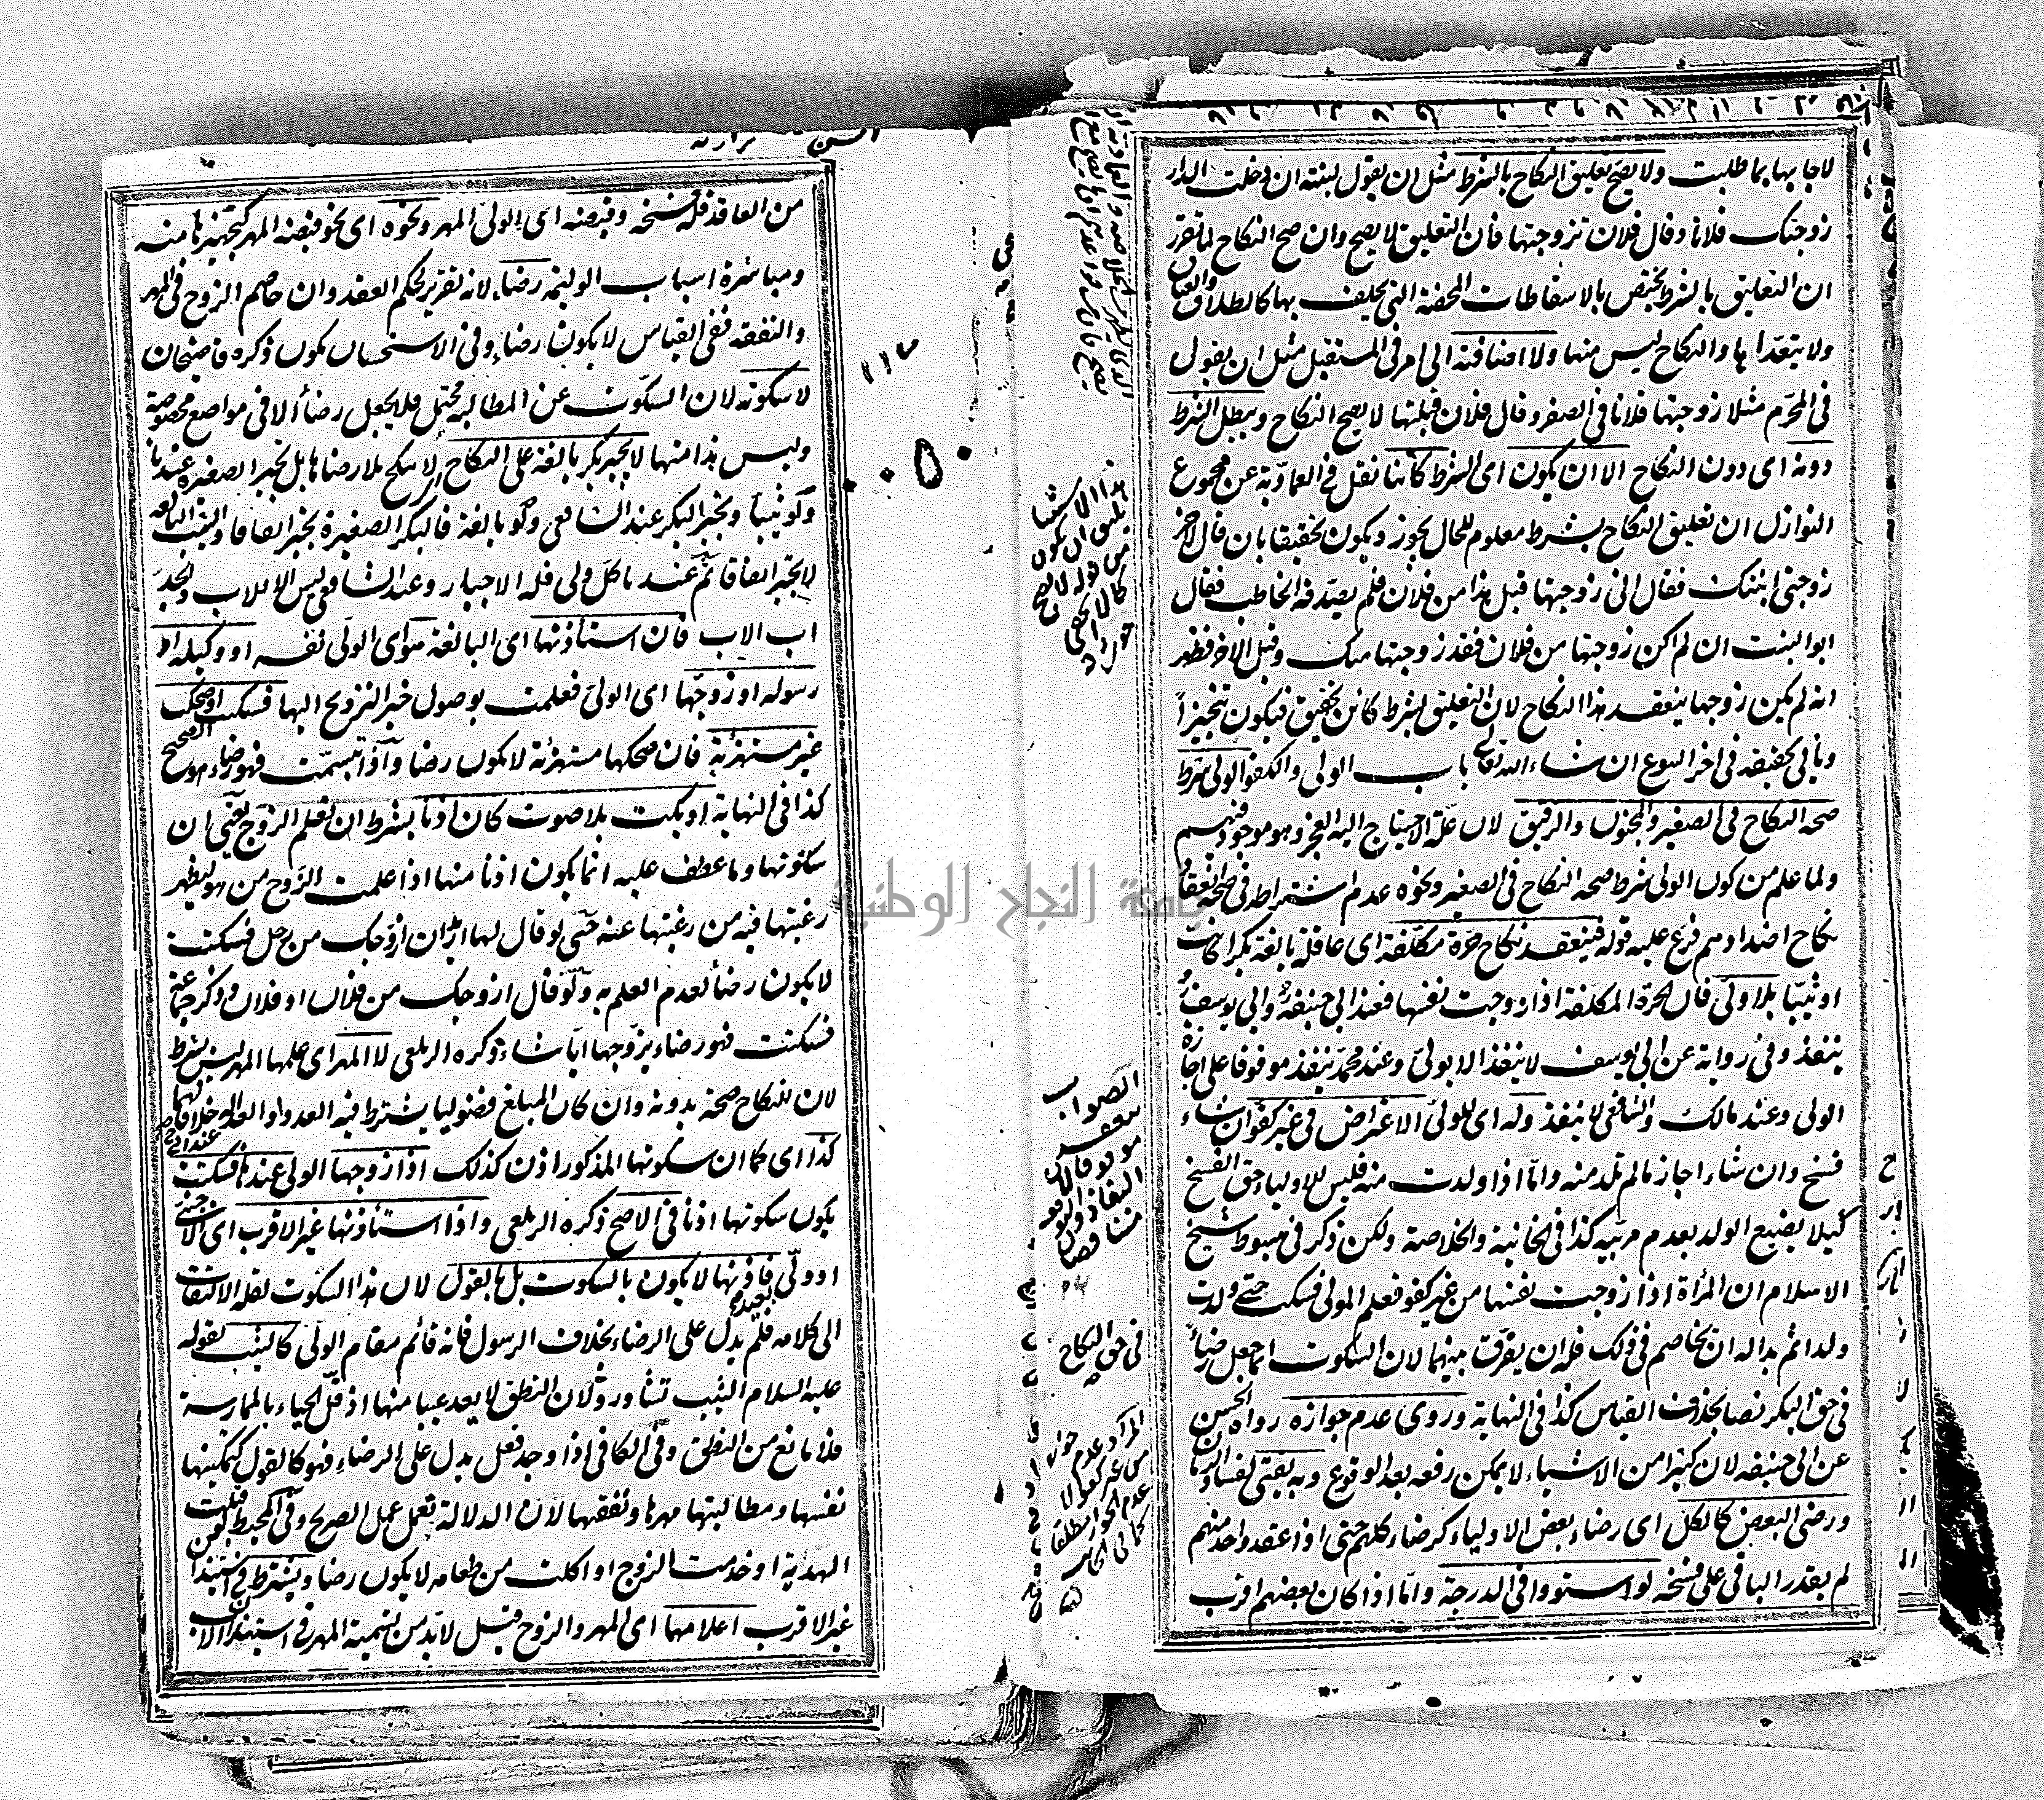 لاجابها بما طلبت ولا يصح تعليق النكاح بالشرط مثل ان يقول لبنته ان دخلت الدار
زوجتك فلانا وقال فلان تزوجتها فان التعليق لا يصح وان صح النكاح لما تقرر
ان التعليق بالشرط يختص بالاسقاطات المحضة التي يحلف بها كالطلاق والعتاق
ولا يتعداها والنكاح ليس منها ولا اضافته الى امر في المستقبل مثل ان يقول
في المحرم مثلا زوجتها فلانا في الصفر وقال فلان قبلتها لا يصح النكاح ويبطل الشرط
دونه اى دون النكاح الا ان يكون اى الشرط كائنا نقل في العمادية عن مجموع
النوازل ان تعليق النكاح بشرط معلوم للحال يجوز ويكون تحقيقا بان قال لاخر
زوجني ابنتك فقال اني زوجتها قبل هذا من فلان فلم يصدقه الخاطب فقال
ابو البنت ان لم اكن زوجتها من فلان فقد زوجتها منك وقبل الاخر فظهر
انه لم يكن زوجها ينعقد هذا النكاح لان التعليق بشرط كائن تحقيق فيكون تنجيزا
ويأتي تحقيقه في اخر البيوع ان شاء الله تعالى باب الولى والكفو الولى شرط
صحة النكاح في الصغير والمجنون والرقيق لان علة الاحتياج اليه العجز وهو موجود فيهم
ولما علم من كون الولى شرط صحة النكاح في الصغير ونحوه عدم اشتراطه في صحة انعقاد
نكاح اضدادهم فرع عليه قوله فينعقد نكاح حرة مكلفة اى عاقلة بالغة بكرا كانت
او ثيبا بلا ولى فان الحرة المكلفة اذا زوجت نفسها فعند ابي حنيفة وابي يوسف
ينفذ وفي رواية عن ابي يوسف لا ينفذ الا بولى وعند محمد ينفذ موقوفا على اجازة
الولى وعند مالك والشافعي لا ينفذ وله اى للولى الاعتراض في غير كفو ان شاء
فسخ وان شاء اجاز ما لم تلد منه واما اذا ولدت منه فليس للاولياء حق الفسخ
كيلا يضيع الولد بعدم مربيه كذا في الخانية والخلاصة ولكن ذكر في مبسوط شيخ
الاسلام ان المرأة اذا زوجت نفسها من غير كفو فعلم المولى فسكت حتى ولدت
ولدا ثم بدا له ان يخاصم في ذلك فله ان يفرق بينهما لان السكوت انما جعل رضاءً
في حق البكر نصا بخلاف القياس كذا في النهاية وروى عدم جوازه رواه الحسن
عن ابي حنيفة لان كثيرا من الاشياء لا يمكن رفعه بعد الوقوع وبه يفتى لفساد الزمان
ورضى البعض كالكل اى رضاء بعض الاولياء كرضاء كلهم حتى اذا عقد واحد منهم
لم يقدر الباقي على فسخه لو استووا في الدرجة واما اذا كان بعضهم اقرب
هذا الاستثنا
يليق ان يكون
من قوله لا يصح
كما لا يخفى
الصواب
في حق النكاح
المراد عدم جوازه
من غير كفو لا
عدم الجواز مطلقا
١١٣
من العاقد فله فسخه وقبضه اى الولى المهر ونحوه اى نحو قبضه المهر كتجهيزها منه
ومباشرة اسباب الوليمة رضاء لانه تقرير لحكم العقد وان خاصم الزوج في المهر
والنفقة ففي القياس لا يكون رضاء وفي الاستحسان يكون ذكره قاضيخان
لا سكوته لان السكوت عن المطالبة محتمل فلا يجعل رضاً الا في مواضع مخصوصة
وليس هذا منها لا يجبر بكر بالغة على النكاح اى لا ينكح بلا رضاها بل يجبر الصغيرة عندنا
ولو ثيبا ويجبر البكر عند الشافعي ولو بالغة فالبكر الصغيرة يجبر اتفاقا والثيب البالغة
لا يجبر اتفاقا ثم عندنا كل ولى فله الاجبار وعند الشافعي ليس الا للاب والجد
اب الاب فان استأذنها اى البالغة هو اى الولى نفسه او وكيله او
رسوله او زوجها اى الولى فعلمت بوصول خبر التزويج اليها فسكتت او ضحكت
غير مستهزئة فان ضحكها مستهزئة لا يكون رضا واذا تبسمت فهو رضاء هو الصحيح
كذا في النهاية او بكت بلا صوت كان اذنا بشرط ان تعلم الزوج يعني ان
سكوتها وما عطف عليه انما يكون اذنا منها اذا علمت الزوج من هو ليظهر
رغبتها فيه من رغبتها عنه حتى لو قال لها اريد ان ازوجك من رجل فسكتت
لا يكون رضاً لعدم العلم به ولو قال ازوجك من فلان او فلان وذكر جماعة
فسكتت فهو رضاء يزوجها ايا شاء ذكره الزيلعي لا المهر اى علمها المهر ليس بشرط
لان للنكاح صحة بدونه وان كان المبلغ فضوليا يشترط فيه العدد او العدالة خلافا لهما
كذا اى كما ان سكوتها المذكور اذن كذلك اذا زوجها الولى عندها فسكتت
يكون سكوتها اذنا في الاصح ذكره الزيلعي واذا استأذنها غير الاقرب اى الاجنبي
او ولى بعيد فاذنها لا يكون بالسكوت بل بالقول لان هذا السكوت لقلة الالتفات
الى كلامه فلم يدل على الرضاء بخلاف الرسول فانه قائم مقام الولى كالثيب لقوله
عليه السلام الثيب تشاور ولان النطق لا يعد عيبا منها اذ قل الحياء بالممارسة
فلا مانع من النطق وفي الكافي اذا وجد فعل يدل على الرضاء فهو كالقول كتمكينها
نفسها ومطالبتها مهرها ونفقتها لان الدلالة تعمل عمل الصريح وفي المحيط لو قبلت
الهدية او خدمت الزوج او اكلت من طعامه لا يكون رضا ويشترط في استيذان
غير الاقرب اعلامها اى المهر والزوج قيل لا بد من تسمية المهر في استيذان الاب
جامعة النجاح الوطنية